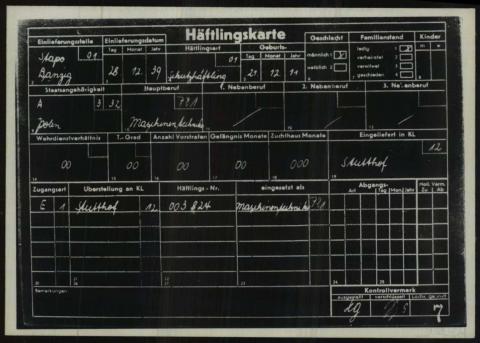 Häftlingskarte
Einlieferungsstelle Einlieferungsdatum Häftlingsart Geburts- Geschlecht Familienstand Kinder
Tag Monat Jahr 01 Tag Monat Jahr männlich 1 X ledig 1 X m w
Stapo 91 verheiratet 2
Danzig 28 12 39 Schutzhäftling 21 12 11 weiblich 2 verwitwet 3
geschieden 4
Staatsangehörigkeit Hauptberuf 1. Nebenberuf 2. Nebenberuf 3. Nebenberuf
A 3 32 771
Polen
Wehrdienstverhältnis T.-Grad Anzahl Vorstrafen Gefängnis Monate Zuchthaus Monate Eingeliefert in KL
12
00 00 00 00 000 Stutthof
Zugangsart Überstellung an KL Häftlings-Nr. eingesetzt als Abgangs-
Art Tag Mon. Jahr
E 1 Stutthof 12 003 824 771
Bemerkungen: Kontrollvermerk
ausgestellt verschlüsselt
7